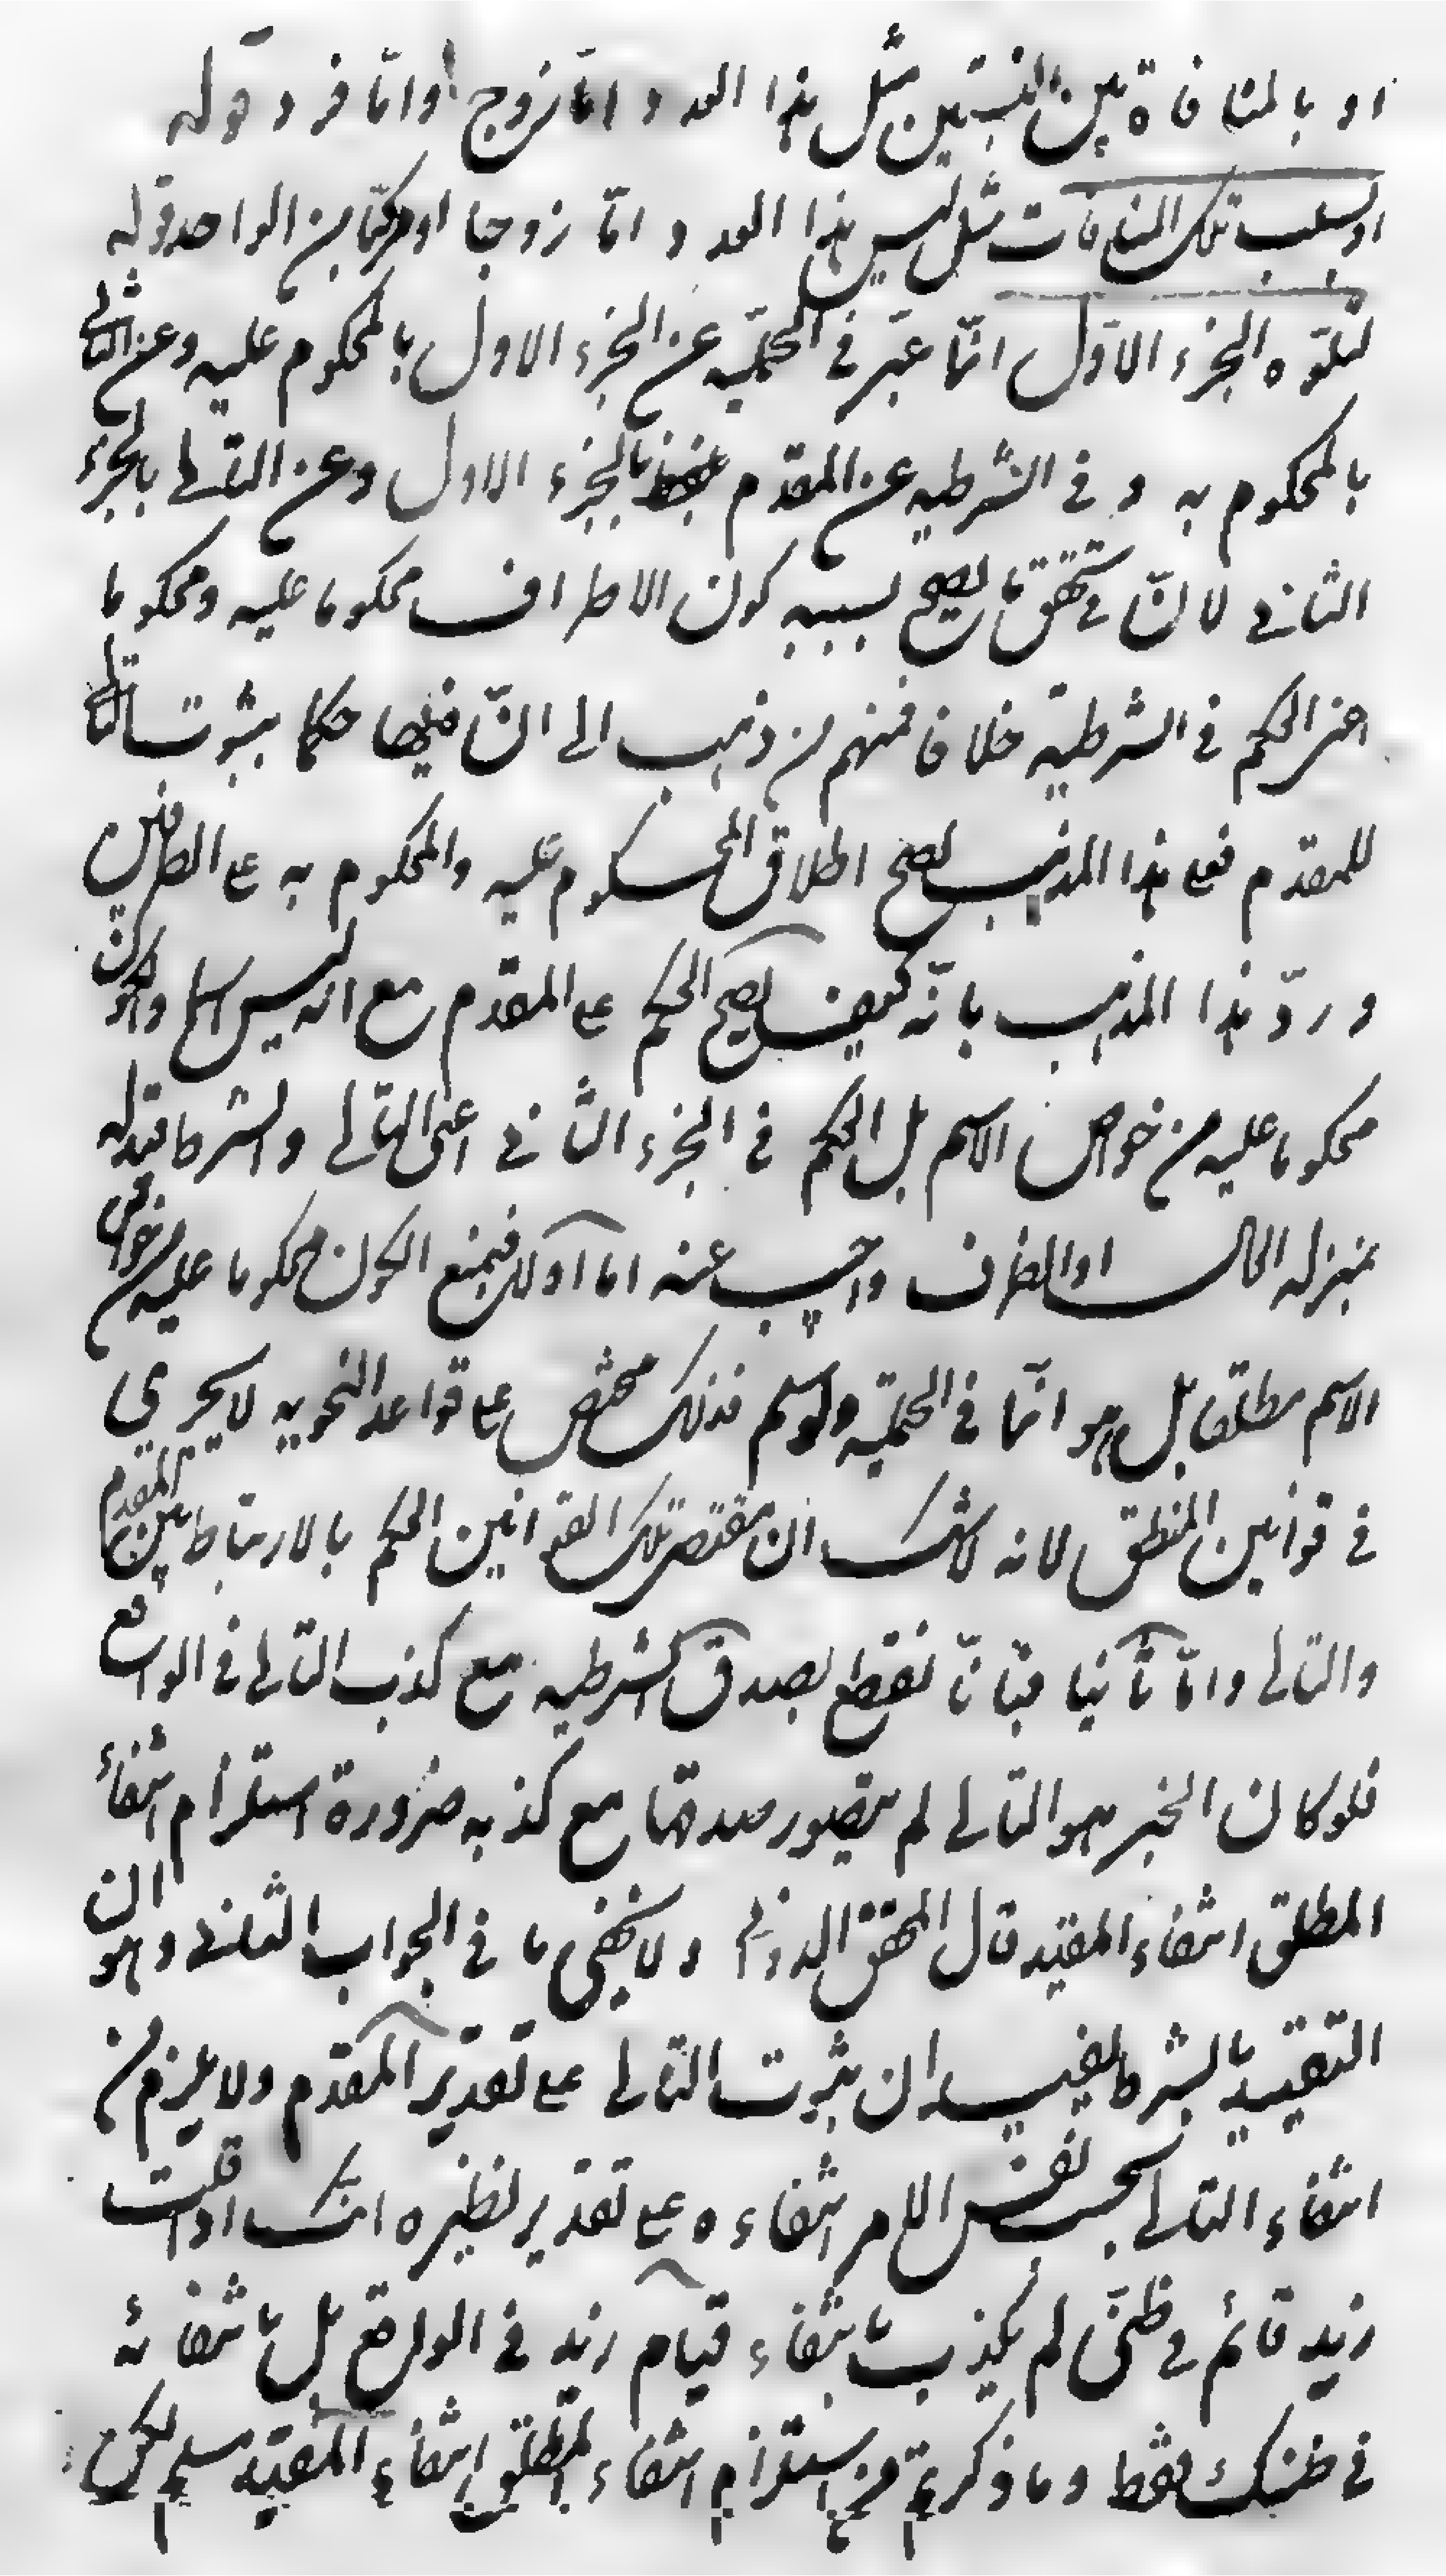 او بالمنافاة بين النسبتين مثل هذا العدد اما زوج اواما فرد قوله
اوبسلب تلك المنافات مثل ليس هذا العدد اما زوجا اومركبا من الواحد قوله
لتلوه الجزء الاول انما عبر في الحملية عن الجزء الاول بالمحكوم عليه وعن الثاني
بالمحكوم به و في الشرطيه عن المقدم بالجزء الاول وعن التالى بالجزء
الثاني لان في تحقق ما يصح بسببه كون الاطراف محكوما عليه ومحكوما
اعنى الحكم في الشرطية خلافا فمنهم من ذهب الى ان فيها حكما بثبوت التالى
للمقدم فعلى هذا المذهب يصح اطلاق المحكوم عليه والمحكوم به على الطرفين
و ردّ هذا المذهب بانّه كيف يصح الحكم على المقدم مع انه ليس اسما والكون
محكوما عليه من خواص الاسم بل الحكم في الجزء الثاني اعنى التالى والشرط قيد له
بمنزله الحال اوالظرف واجيب عنه اما اولا فبمنع الكون محكوما عليه من خواص
الاسم مطلقا بل هو انما في الحملية ولوسلم فذلك مختص على قواعد النحويه لا يجرى
في قوانين المنطق لانه لاشك ان مقتضى تلك القوانين الحكم بالارتباط بين المقدم
والتالى واما ثانيا فبانا نقطع بصدق الشرطيه مع كذب التالى في الواقع
فلوكان الخبر هو التالى لم يتصور صدقها مع كذبه ضرورة استلزام انتفاء
المطلق انتفاء المقيد قال المحقق الدواني ولا يخفى ما في الجواب الثاني وهو ان
التقييد بالشرط يفيد ان ثبوت التالى على تقدير المقدم ولا يلزم من
انتفاء التالى بحسب نفس الامر انتفاءه على تقدير نظيره انك اذا قلت
زيد قائم في ظنى لم يكذب بانتفاء قيام زيد في الواقع بل بانتفائه
في ظنك فقط وما ذكرتم من استلزام انتفاء المطلق انتفاء المقيد مسلم لكن